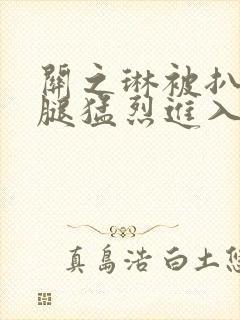 關之琳被扒
腿猛烈進入
真島浩 白土悠